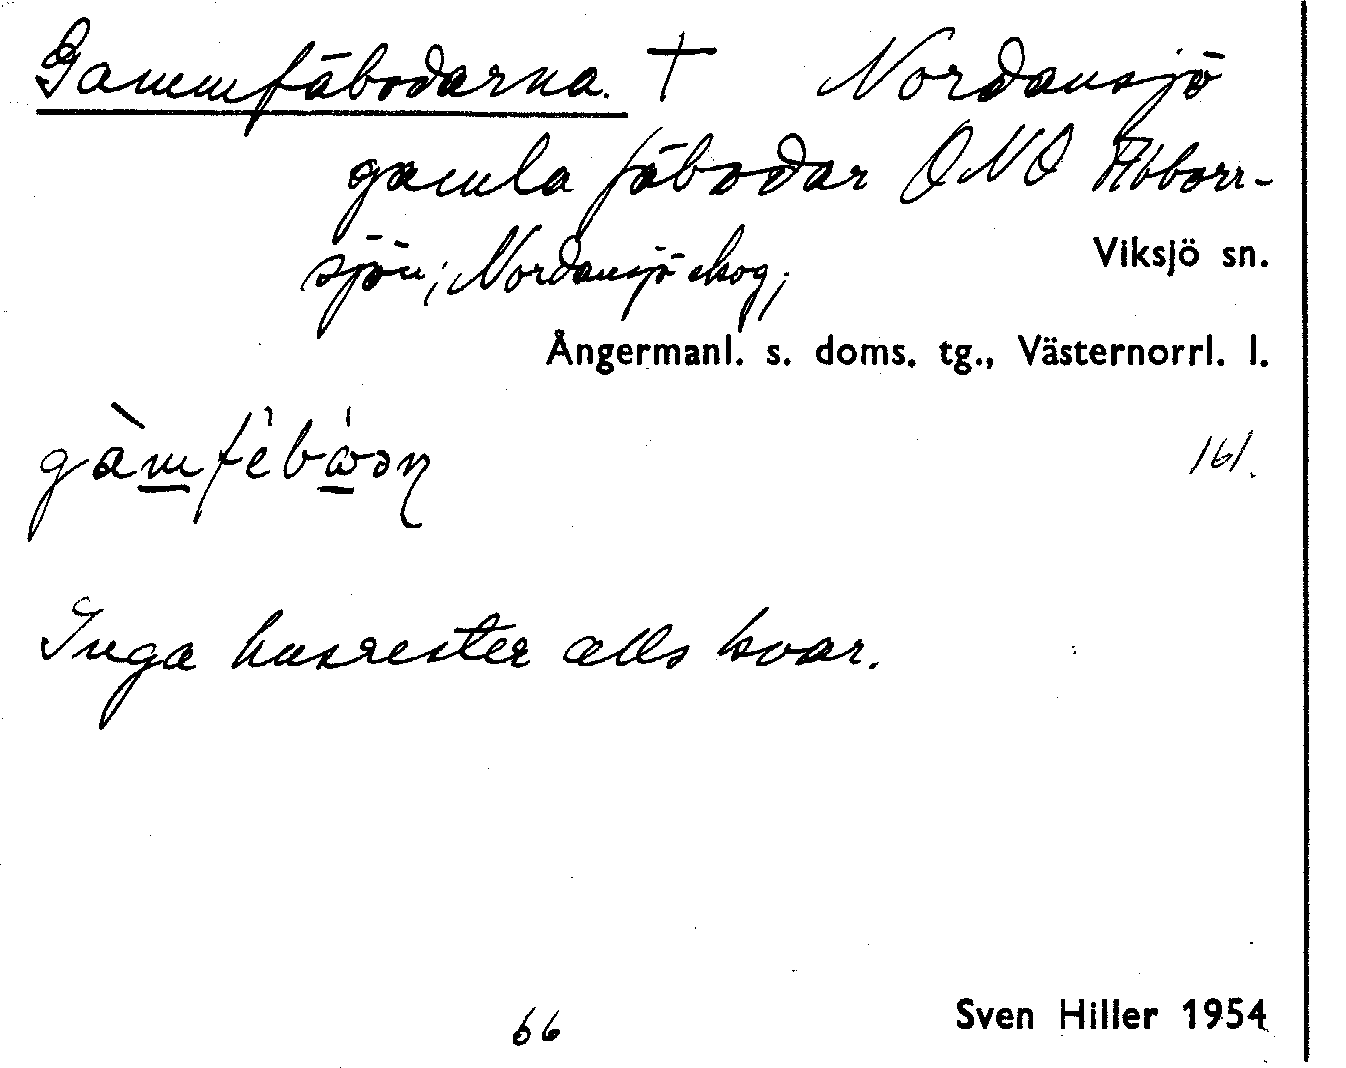 Gammfäbodarna. † Nordansjö
gamla fäbodar ONO Abborr-
sjön; Nordansjö skog;
Viksjö sn.
Ångermanl. s. doms. tg., Västernorrl. l.
gàmfèbóɷdn̥
161.
Inga husrester alls kvar.
66
Sven Hiller 1954